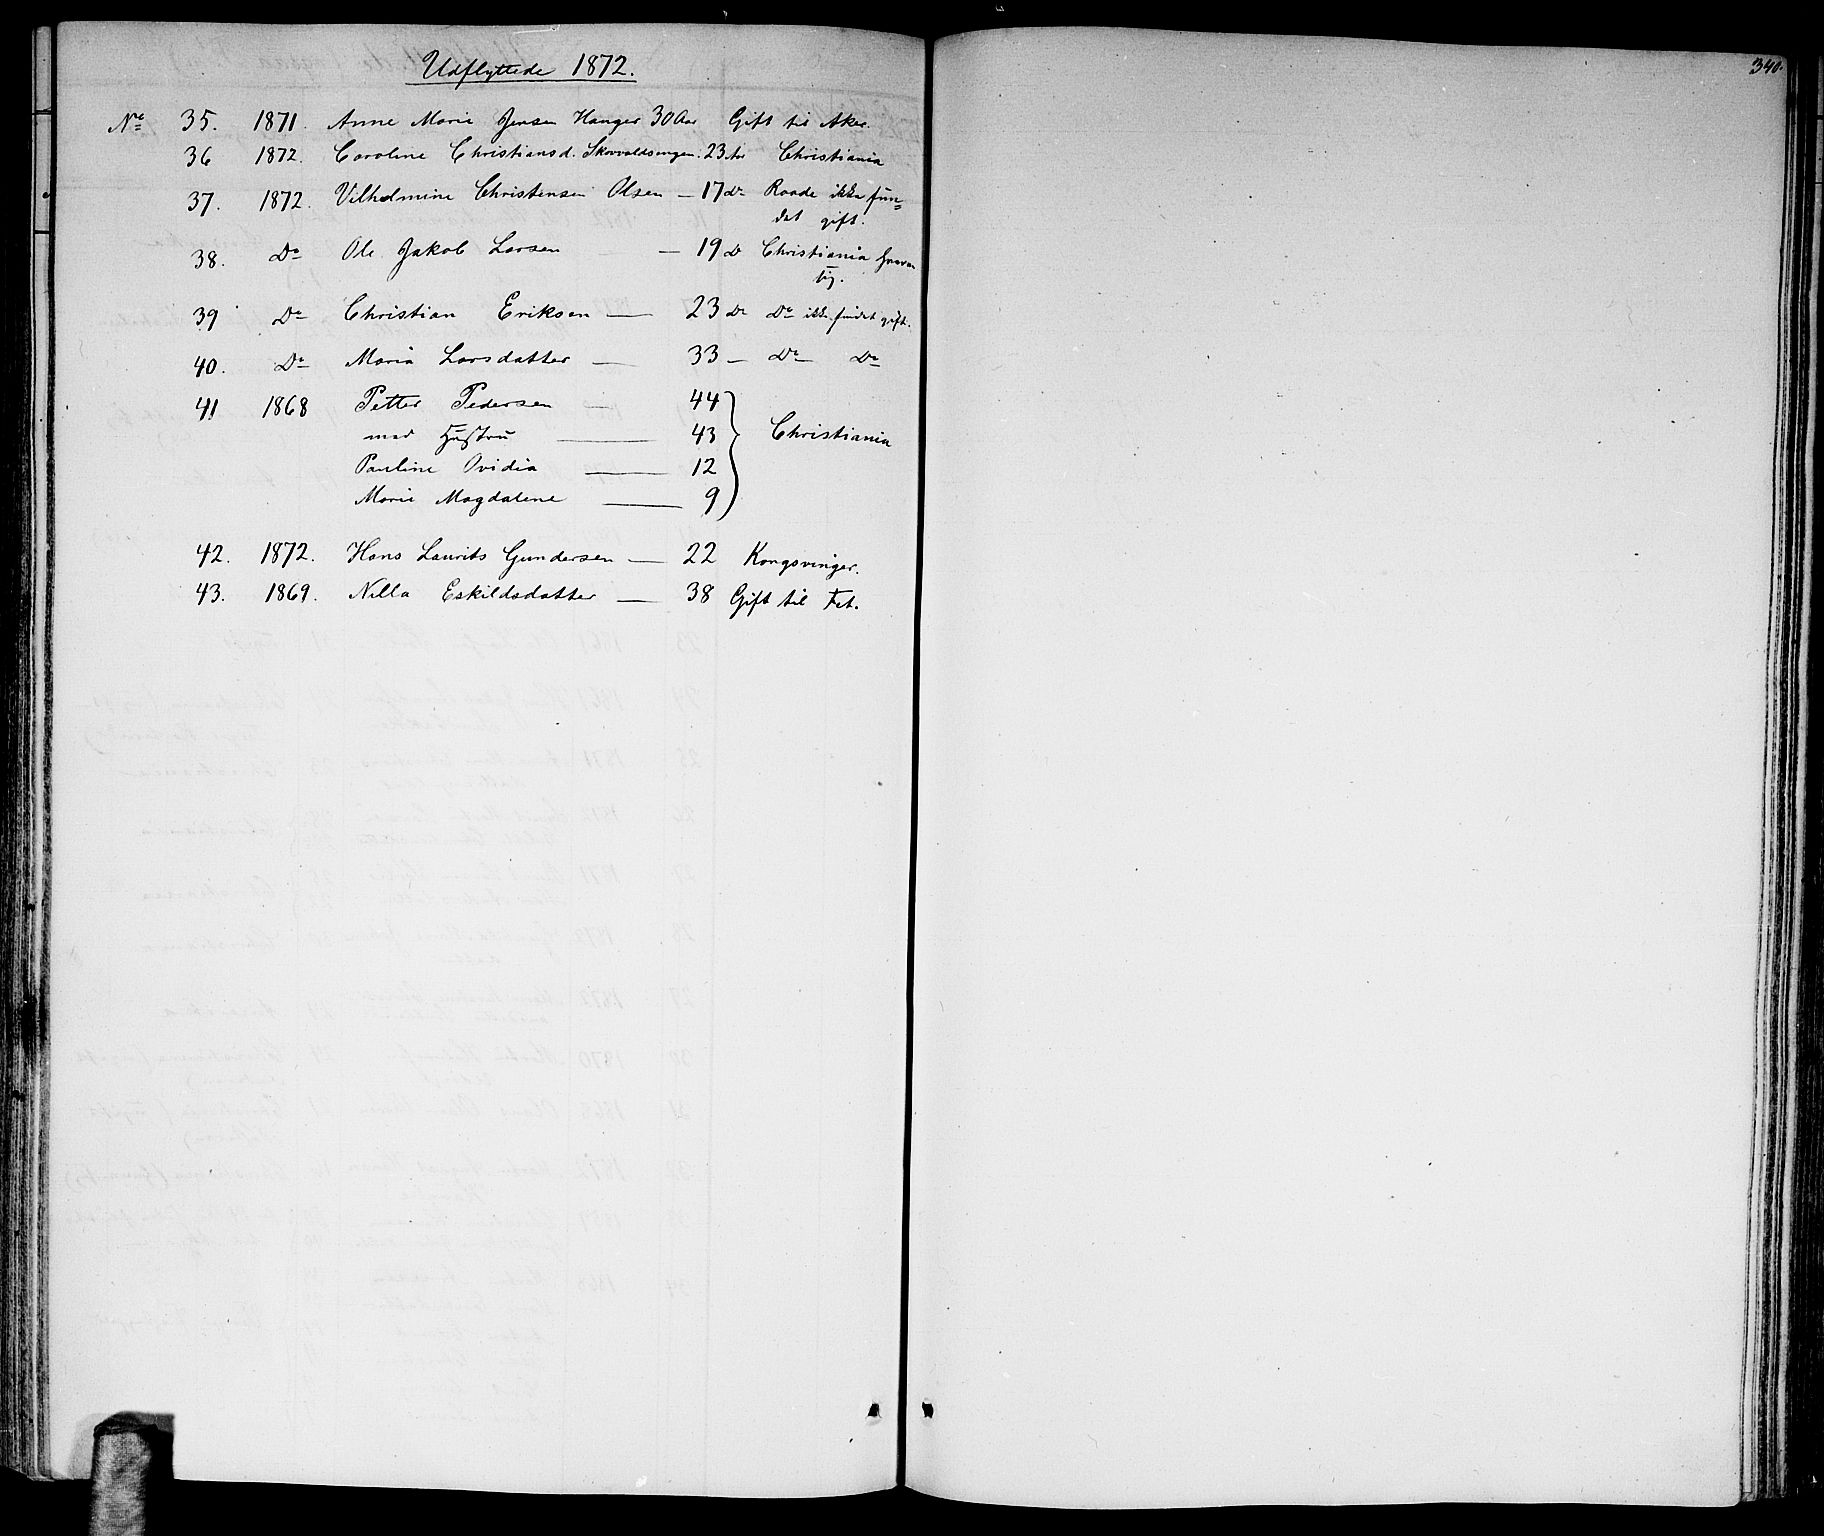 Udflyttede 1872.
340.
No 35. 1871. Anne Marie Jensen Hanger 30 Aar Gift til Aker.
36 1872. Caroline Christiansd. Skovvoldsengen. 23 Aar Christiania
37. 1872. Vilhelmine Christensen Olsen — 17 Do Raade ikke fun=
det gift.
38. Do Ole Jakob Larsen — 19 Do Christiania
39 Do Christian Eriksen — 23 Do Do ikke fundet gift.
40. Do Maria Larsdatter — 33 — Do Do
41 1868 Petter Pedersen — 44
med Hustru — 43 Christiania
Pauline Ovidia — 12
Marie Magdalene — 9
42. 1872. Hans Laurits Gundersen — 22 Kongsvinger.
43. 1869. Nilla Eskildsdatter — 38 Gift til Fet.